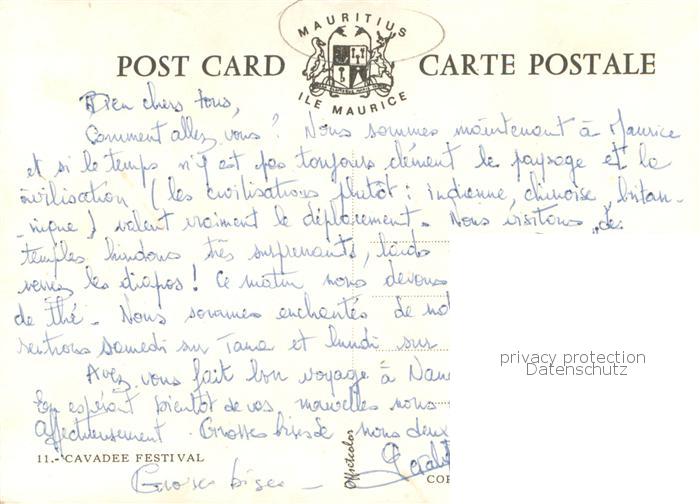 MAURITIUS
POST CARD CARTE POSTALE
ILE MAURICE
Bien chers tous,
Comment allez vous ? Nous sommes maintenant à Maurice
et si le temps n'y est pas toujours clément le paysage et la
civilisation (les civilisations plutôt : indienne, chinoise, britan-
nique) valent vraiment le déplacement. Nous visitons des
temples hindous, très surprenants,
verrez les diapos ! Ce matin nous devons
de thé. Nous sommes enchantés de no
rentrons samedi sur Tana et lundi sur
Avez vous fait bon voyage à
En espérant bientôt de vos nouvelles nous
affectueusement. Grosses bises de nous deux
11.- CAVADEE FESTIVAL
Grosses bises -
Offsetcolor
COP
privacy protection
Datenschutz